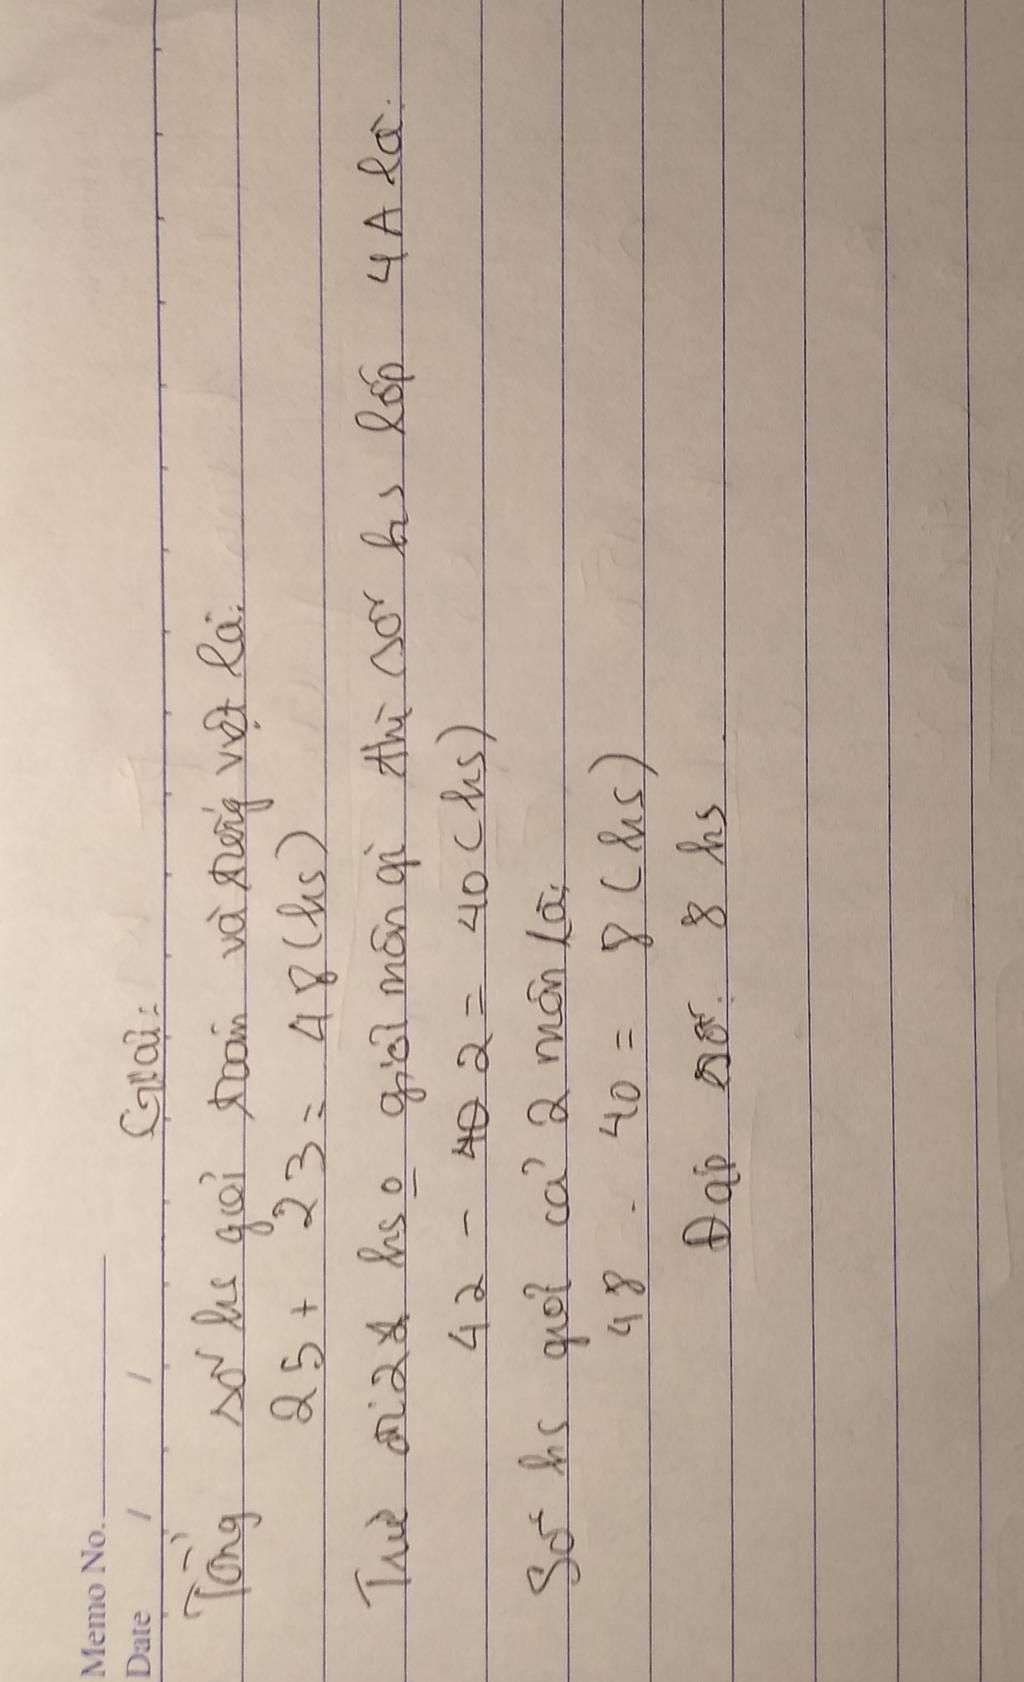 Memo No.
Date / /
Giải:
Tổng số hs giỏi toán và tiếng việt là:
25 + 23 = 48 (hs)
Trừ đi 2 hs o giỏi môn gì thì số hs lớp 4A là:
42 - 2 = 40 (hs)
Số hs giỏi cả 2 môn là:
48 - 40 = 8 (hs)
Đáp số: 8 hs